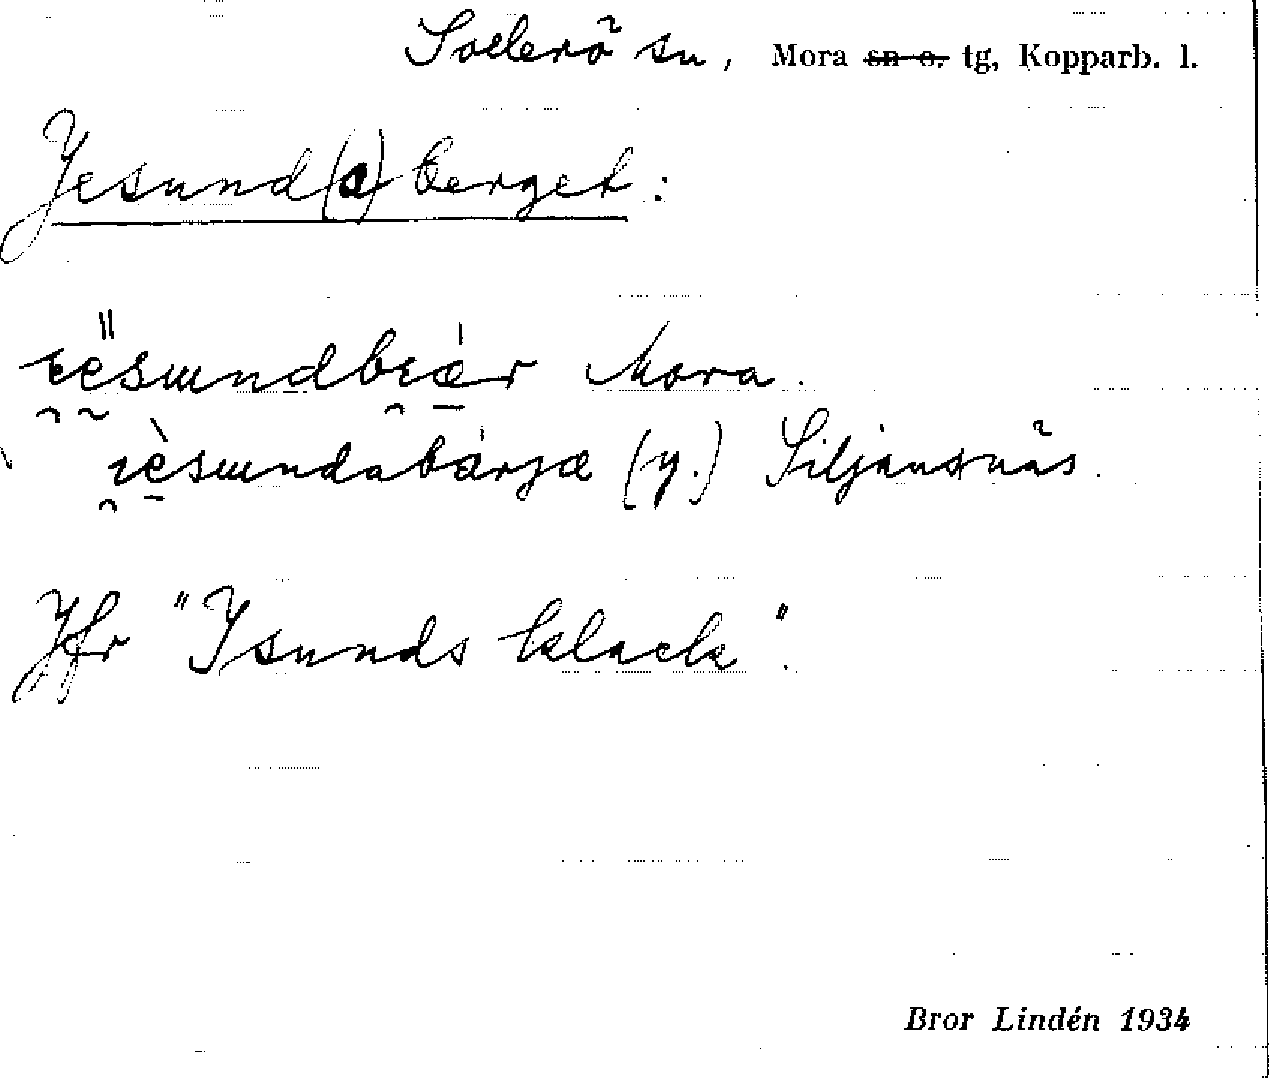 Sollerö sn, Mora sn o. tg, Kopparb. l.
Jesund(a)berget:
Mora.
(y.) Siljansnäs.
Jfr "Isunds klack".
Bror Lindén 1934